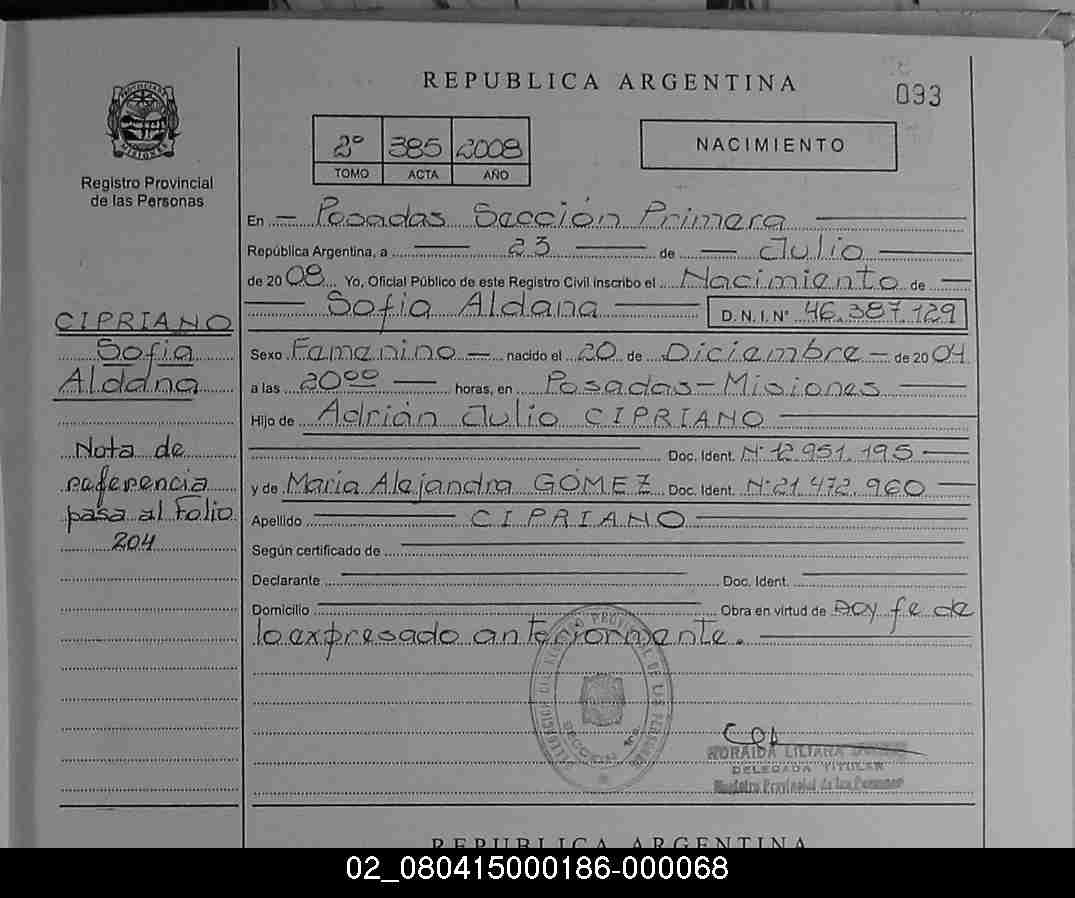 REPUBLICA ARGENTINA
093
2º 385 2008
TOMO ACTA AÑO
NACIMIENTO
PROVINCIA DE MISIONES
Registro Provincial
de las Personas
CIPRIANO
Sofia
Aldana
Nota de
referencia
pasa al Folio
204
En Posadas Sección Primera
República Argentina, a 23 de Julio
de 2008 Yo, Oficial Público de este Registro Civil inscribo el Nacimiento de
Sofia Aldana D.N.I.Nº 46.387.129
Sexo Femenino nacido el 20 de Diciembre de 2004
a las 20 00 horas, en Posadas - Misiones
Hijo de Adrián Julio CIPRIANO
Doc. Ident. Nº 12.951.195
y de María Alejandra GOMEZ Doc. Ident. Nº 21.472.960
Apellido CIPRIANO
Según certificado de
Declarante Doc. Ident.
Domicilio Obra en virtud de Doy fe de
lo expresado anteriormente.
DELEGACION DEL REGISTRO PROVINCIAL DE LAS PERSONAS
SECCION 1ra.
LILIANA
DELEGADA TITULAR
Registro Provincial de las Personas
REPUBLICA ARGENTINA
02_080415000186-000068